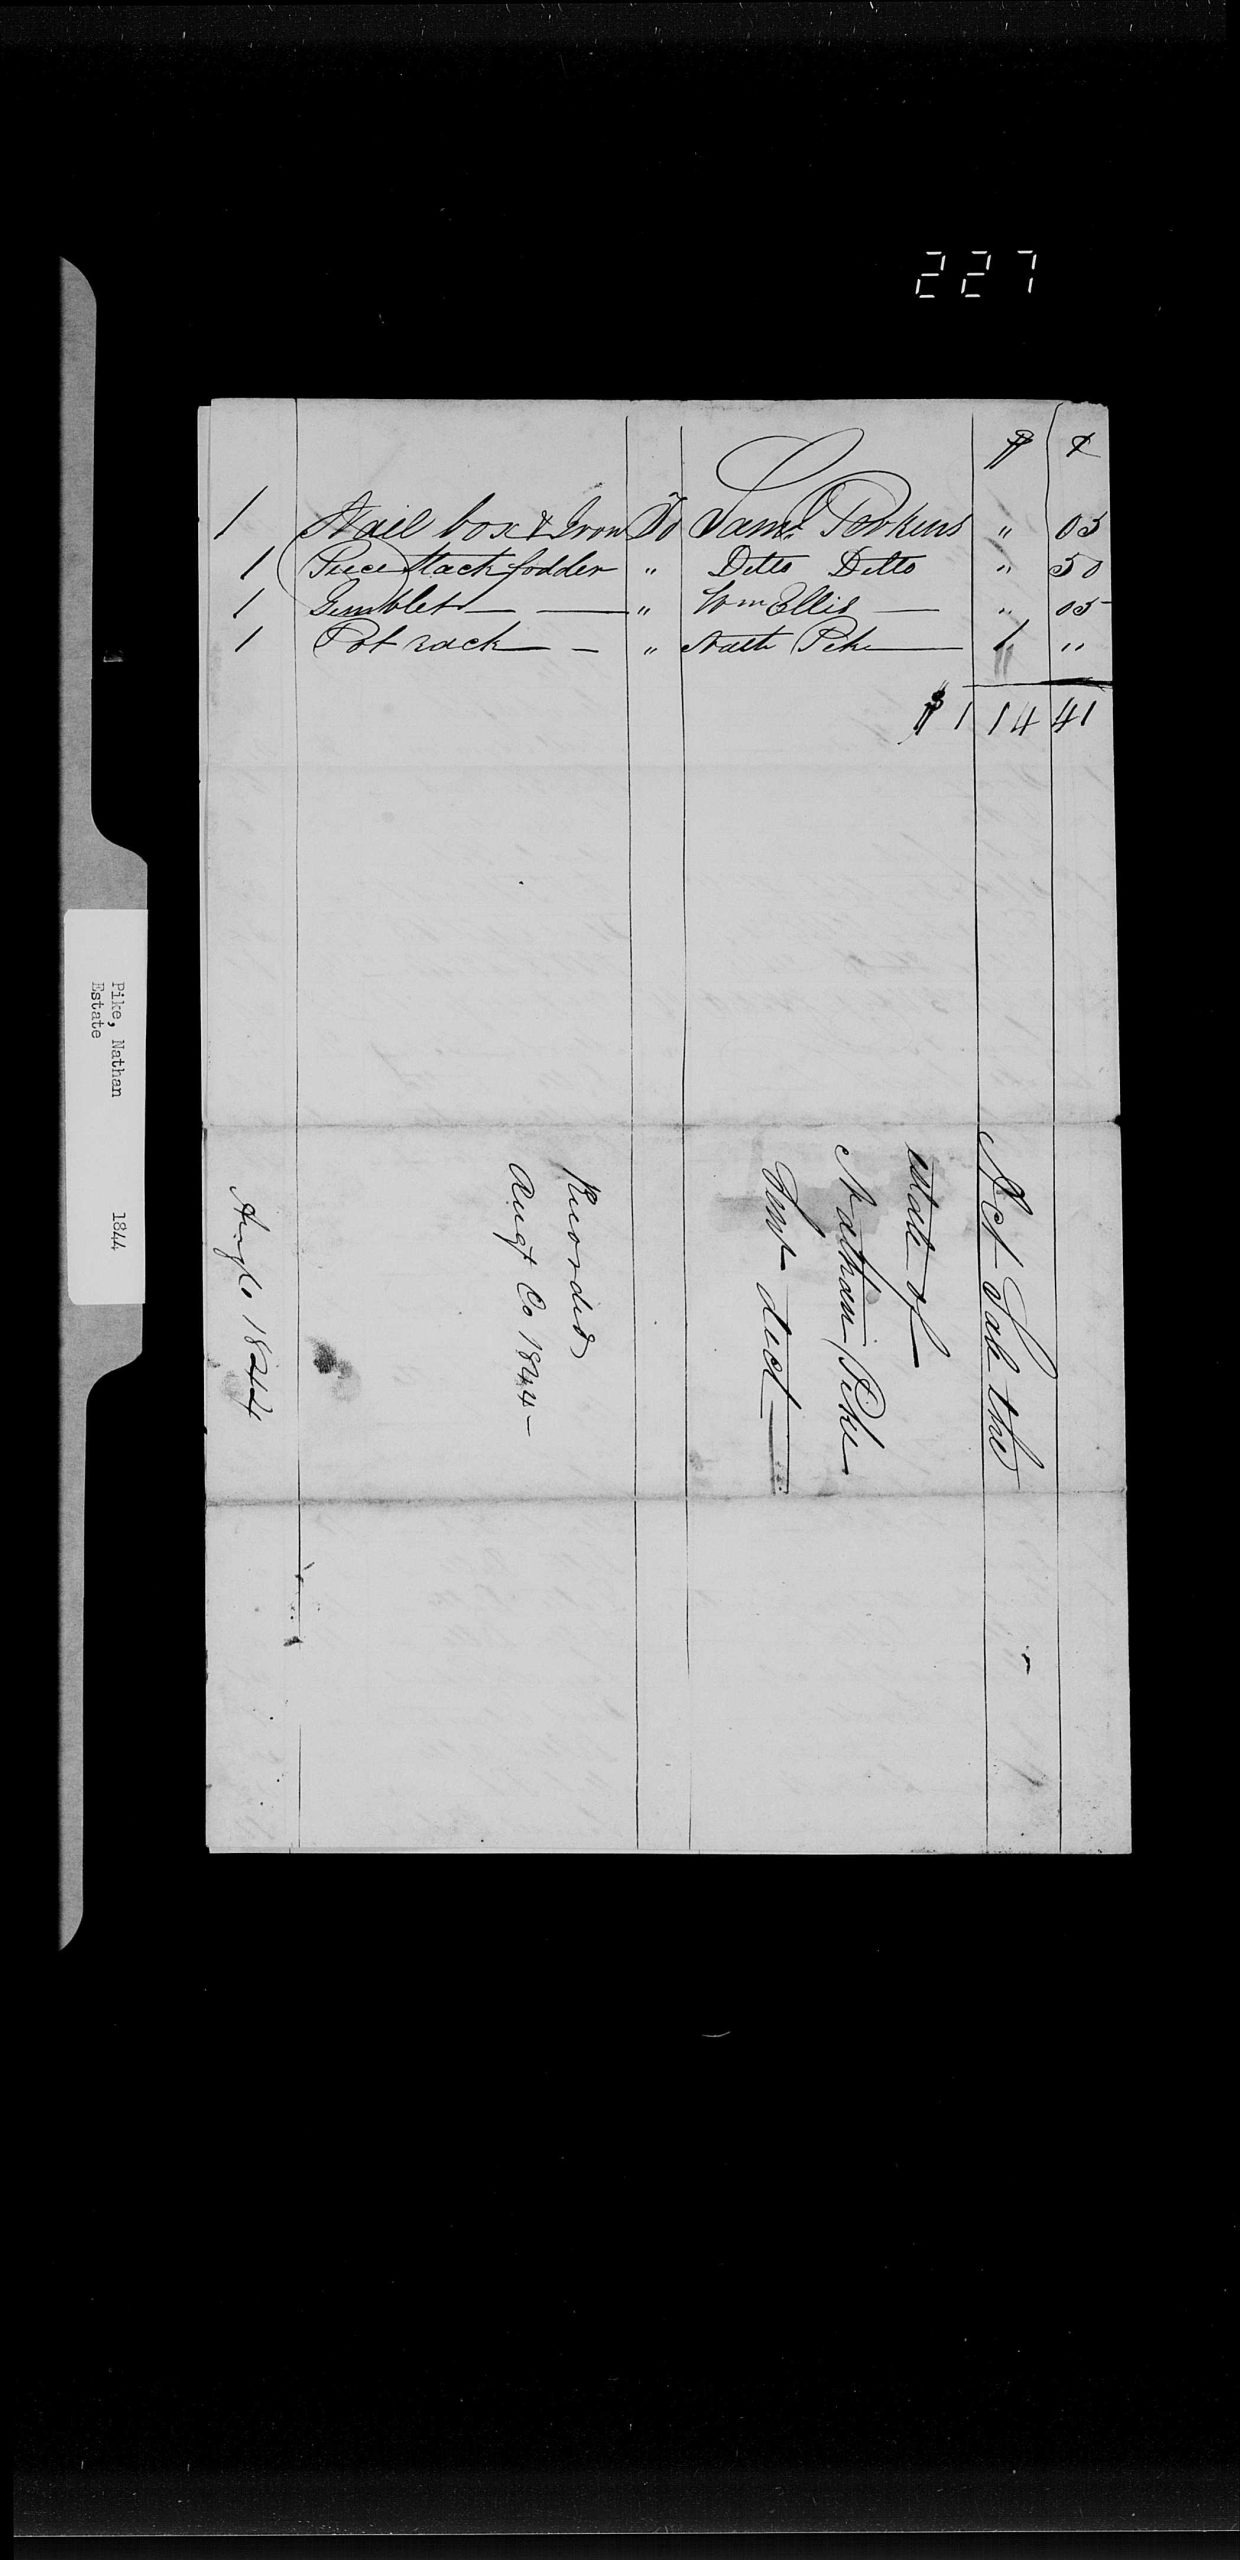 227
$ ¢
1 Nail box & Iron To Saml Perkins " 05
1 Piece Stack fodder " Ditto Ditto " 50
1 Gimblet " Wm Ellis " 05
1 Pot rack " Nath Pike 1 "
$ 114 41
Act Sale the
estate of
Nathan Pike
decd
Recorded
Augt Co 1844
1844
Pike, Nathan 1844
Estate